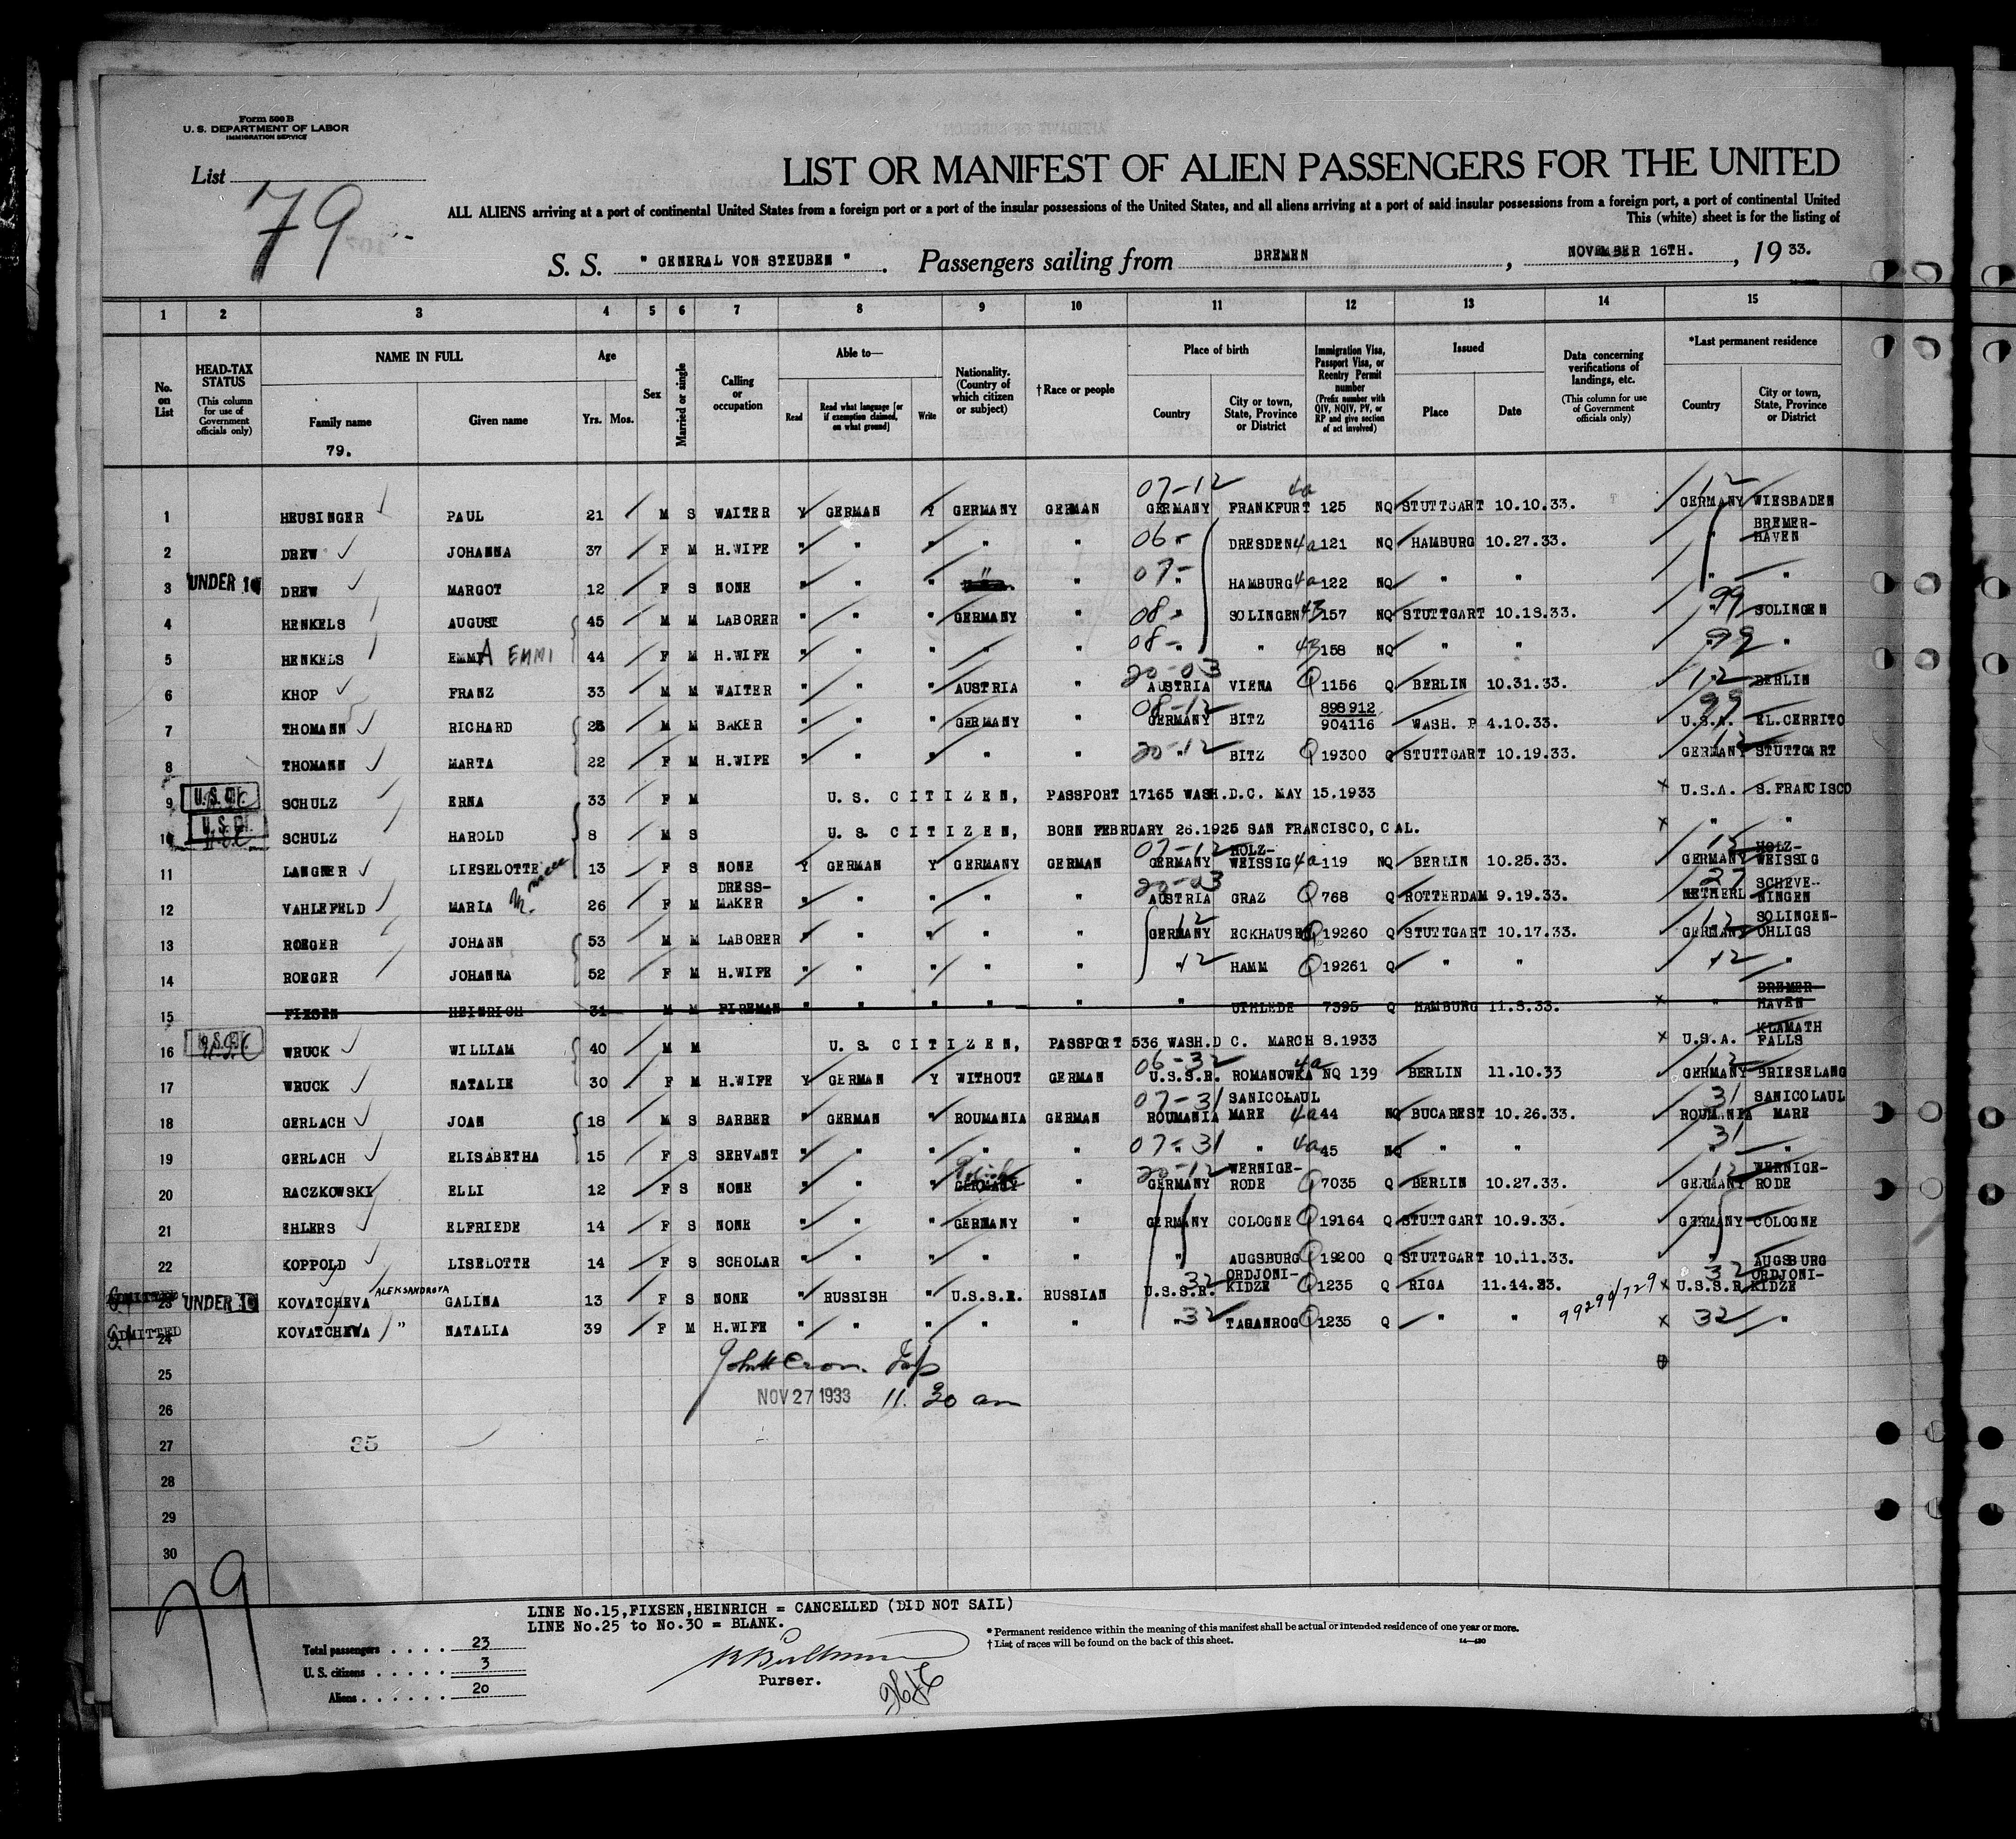 Form 500 B
U. S. DEPARTMENT OF LABOR
IMMIGRATION SERVICE
List
79
LIST OR MANIFEST OF ALIEN PASSENGERS FOR THE UNITED
ALL ALIENS arriving at a port of continental United States from a foreign port or a port of the insular possessions of the United States, and all aliens arriving at a port of said insular possessions from a foreign port, a port of continental United
This (white) sheet is for the listing of
S. S. " GENERAL VON STEUBEN " . Passengers sailing from BREMEN , NOVEMBER 16TH. , 19 33.
1 2 3 4 5 6 7 8 9 10 11 12 13 14 15
No. on List
HEAD-TAX STATUS (This column for use of Government officials only)
NAME IN FULL
Family name
79.
Given name
Age
Yrs. Mos.
Sex
Married or single
Calling or occupation
Able to—
Read
Read what language [or if exemption claimed, on what ground]
Write
Nationality. (Country of which citizen or subject)
† Race or people
Place of birth
Country
City or town, State, Province or District
Immigration Visa, Passport Visa, or Reentry Permit number (Prefix number with QIV, NQIV, PV, or RP and give section of act involved)
Issued
Place
Date
Data concerning verifications of landings, etc. (This column for use of Government officials only)
*Last permanent residence
Country
City or town, State, Province or District
07-12 4a 12
1 HEUSINGER PAUL 21 M S WAITER Y GERMAN Y GERMANY GERMAN GERMANY FRANKFURT 125 NQ STUTTGART 10.10.33. GERMANY WIESBADEN
2 DREW JOHANNA 37 F M H.WIFE " " " " " 06- " DRESDEN 4a 121 NQ HAMBURG 10.27.33. " BREMER-HAVEN
3 UNDER 16 DREW MARGOT 12 F S NONE " " " " " 07- " HAMBURG 4a 122 NQ " " " "
4 HENKELS AUGUST 45 M M LABORER " " " GERMANY " 08- " SOLINGEN 43 157 NQ STUTTGART 10.18.33. 99 " SOLINGEN
5 HENKELS EMMA EMMI 44 F M H.WIFE " " " " " 08- " " 43 158 NQ " " 99 " "
6 KHOP FRANZ 33 M M WAITER " " " AUSTRIA " 20-03 AUSTRIA VIENA Q 1156 Q BERLIN 10.31.33. 12 " BERLIN
7 THOMANN RICHARD 28 M M BAKER " " " GERMANY " 08-12 GERMANY BITZ 898912 904116 WASH. P 4.10.33. 99 U.S.A. EL.CERRITO
8 THOMANN MARTA 22 F M H.WIFE " " " " " 20-12 " BITZ Q 19300 Q STUTTGART 10.19.33. 12 GERMANY STUTTGART
9 U.S. CIT. SCHULZ ERNA 33 F M U. S. C I T I Z E N, PASSPORT 17165 WASH.D.C. MAY 15.1933 x U.S.A. S.FRANCISCO
10 U.S. CIT. SCHULZ HAROLD 8 M S U. S. C I T I Z E N, BORN FEBRUARY 26.1925 SAN FRANCISCO, CAL. x " "
11 LANGNER LIESELOTTE niece 13 F S NONE Y GERMAN Y GERMANY GERMAN 07-12 GERMANY HOLZ-WEISSIG 4a 119 NQ BERLIN 10.25.33. 12 GERMANY HOLZ-WEISSIG
12 VAHLEFELD MARIA 26 F M DRESS-MAKER " " " " " 20-03 AUSTRIA GRAZ Q 768 Q ROTTERDAM 9.19.33. 27 NETHERL SCHEVE-NINGEN
13 ROEGER JOHANN 53 M M LABORER " " " " " 12 GERMANY ECKHAUSEN Q 19260 Q STUTTGART 10.17.33. 12 GERMANY SOLINGEN-OHLIGS
14 ROEGER JOHANNA 52 F M H.WIFE " " " " " 12 " HAMM Q 19261 Q " " 12 " "
15 FIXSEN HEINRICH 31 M M FIREMAN " " " " " " UTHLEDE 7395 Q HAMBURG 11.8.33. x " BREMER-HAVEN
16 U.S. CIT. WRUCK WILLIAM 40 M M U. S. C I T I Z E N, PASSPORT 536 WASH.D C. MARCH 8.1933 x U.S.A. KLAMATH FALLS
17 WRUCK NATALIE 30 F M H.WIFE Y GERMAN Y WITHOUT GERMAN 06-32 U.S.S.R. ROMANOWKA 4a NQ 139 BERLIN 11.10.33 12 GERMANY BRIESELANG
18 GERLACH JOAN 18 M S BARBER " GERMAN " ROUMANIA GERMAN 07-31 ROUMANIA SANICOLAUL MARE 4a 44 NQ BUCAREST 10.26.33. 31 ROUMANIA SANICOLAUL MARE
19 GERLACH ELISABETHA 15 F S SERVANT " " " " " 07-31 " " 4a 45 NQ " " 31 " "
20 RACZKOWSKI ELLI 12 F S NONE " " " Polish GERMANY " 20-12 GERMANY WERNIGE-RODE Q 7035 Q BERLIN 10.27.33. 12 GERMANY WERNIGE-RODE
21 EHLERS ELFRIEDE 14 F S NONE " " " GERMANY " GERMANY COLOGNE Q 19164 Q STUTTGART 10.9.33. GERMANY COLOGNE
22 KOPPOLD LISELOTTE 14 F S SCHOLAR " " " " " " AUGSBURG Q 19200 Q STUTTGART 10.11.33. " AUGSBURG
ADMITTED 23 UNDER 16 KOVATCHEVA ALEKSANDROVA GALINA 13 F S NONE " RUSSISH " U.S.S.R. RUSSIAN 32 U.S.S.R. ORDJONI-KIDZE Q 1235 Q RIGA 11.14.33. 99290/729 x 32 U.S.S.R. ORDJONI-KIDZE
ADMITTED 24 KOVATCHEWA " NATALIA 39 F M H.WIFE " " " " " 32 " TAGANROG Q 1235 Q " " x 32 "
25
NOV 27 1933 11. 30 am
26
27 35
28
29
30
79
LINE No.15,FIXSEN,HEINRICH = CANCELLED (DID NOT SAIL)
LINE No.25 to No.30 = BLANK.
* Permanent residence within the meaning of this manifest shall be actual or intended residence of one year or more.
† List of races will be found on the back of this sheet.
14—430
Total passengers . . . . . 23
U. S. citizens . . . . . . 3
Aliens . . . . . . 20
Purser.